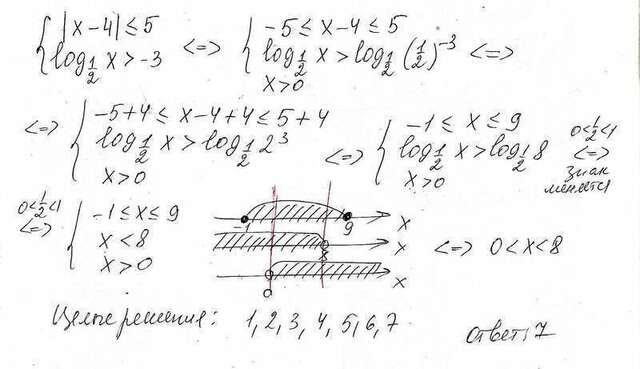 { |x-4| ≤ 5
{ log½ x > -3
<=>
{ -5 ≤ x-4 ≤ 5
{ log½ x > log½ (½)⁻³
{ x > 0
<=>
<=> { -5+4 ≤ x-4+4 ≤ 5+4
{ log½ x > log½ 2³
{ x > 0
<=>
{ -1 ≤ x ≤ 9
{ log½ x > log½ 8
{ x > 0
0<½<1
<=>
знак
меняется
0<½<1
<=>
{ -1 ≤ x ≤ 9
{ x < 8
{ x > 0
-1 9 x
8 x
0 x
<=> 0 < x < 8
Целые решения: 1, 2, 3, 4, 5, 6, 7
Ответ: 7